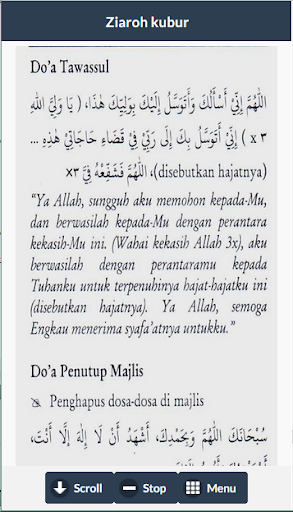 Ziaroh kubur
Do'a Tawassul
اَللّٰهُمَّ إِنِّيْ أَسْأَلُكَ وَأَتَوَسَّلُ إِلَيْكَ بِوَلِيِّكَ هٰذَا، ( يَا وَلِيَّ اللهِ
x ٣ ) إِنِّيْ أَتَوَسَّلُ بِكَ إِلَى رَبِّيْ فِيْ قَضَاءِ حَاجَاتِيْ هٰذِهِ ...
(disebutkan hajatnya)، اَللّٰهُمَّ فَشَفِّعْهُ فِيَّ x٣
"Ya Allah, sungguh aku memohon kepada-Mu,
dan berwasilah kepada-Mu dengan perantara
kekasih-Mu ini. (Wahai kekasih Allah 3x), aku
berwasilah dengan perantaramu kepada
Tuhanku untuk terpenuhinya hajat-hajatku ini
(disebutkan hajatnya). Ya Allah, semoga
Engkau menerima syafa'atnya untukku."
Do'a Penutup Majlis
Penghapus dosa-dosa di majlis
سُبْحَانَكَ اللّٰهُمَّ وَبِحَمْدِكَ، أَشْهَدُ أَنْ لَا إِلٰهَ إِلَّا أَنْتَ،
Scroll Stop Menu